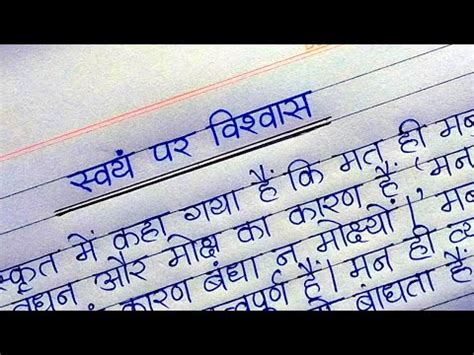 स्वयं पर विश्वास
स्कृत में कहा गया हैं कि मत ही
बंधन और मोक्ष का कारण हैं 'मन
कारण बंधा न मोक्ष्यो।'
पूर्ण हैं। मन ही
बांधता है